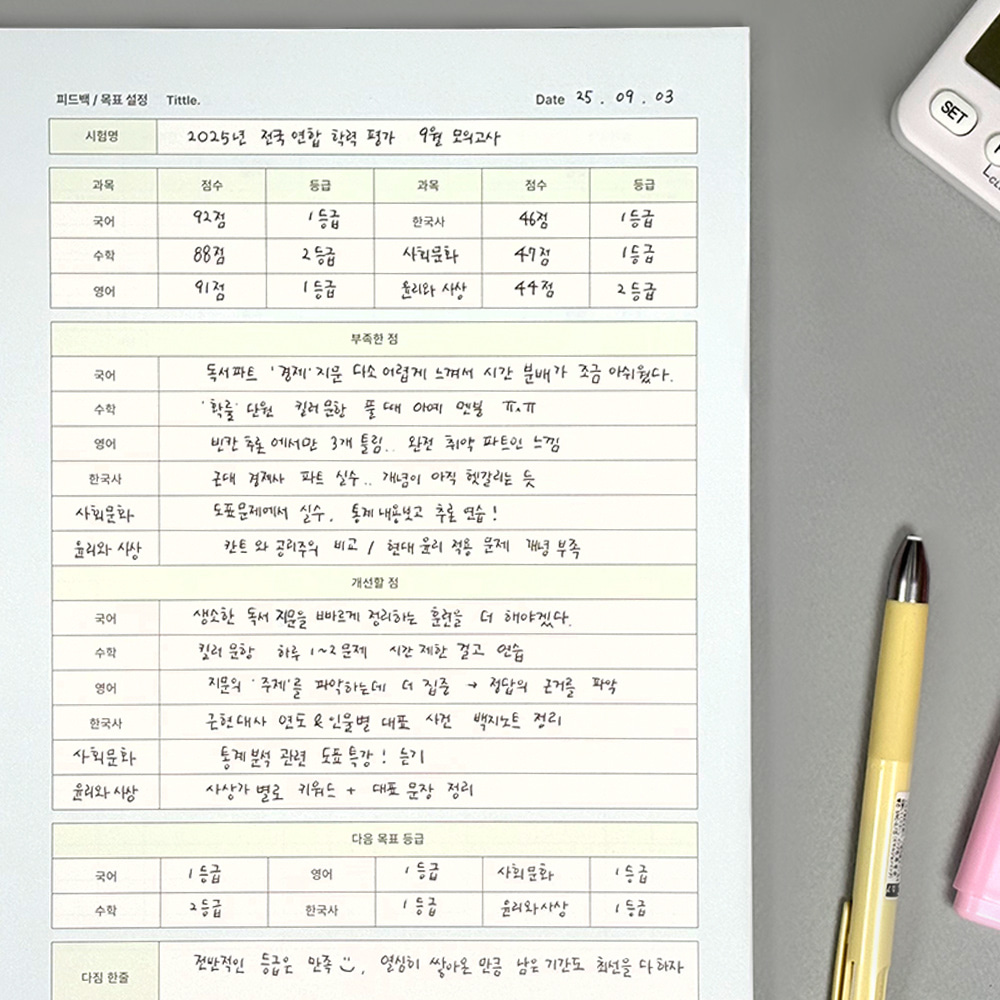 피드백 / 목표 설정 Tittle. Date 25 . 09 . 03
시험명 2025년 전국 연합 학력 평가 9월 모의고사
과목 점수 등급 과목 점수 등급
국어 92점 1등급 한국사 46점 1등급
수학 88점 2등급 사회문화 47점 1등급
영어 91점 1등급 윤리와 사상 44점 2등급
부족한 점
국어 독서파트 '경제' 지문 다소 어렵게 느껴서 시간 분배가 조금 아쉬웠다.
수학 '확률' 단원 킬러문항 풀 때 아예 멘붕 ㅠ.ㅠ
영어 빈칸 추론에서만 3개 틀림.. 완전 취약 파트인 느낌
한국사 근대 경제사 파트 실수.. 개념이 아직 헷갈리는 듯
사회문화 도표문제에서 실수, 통계 내용보고 추론 연습!
윤리와 사상 칸트 와 공리주의 비교 / 현대 윤리 적용 문제 개념 부족
개선할 점
국어 생소한 독서 지문을 빠르게 정리하는 훈련을 더 해야겠다.
수학 킬러 문항 하루 1~2문제 시간 제한 걸고 연습
영어 지문의 '주제'를 파악하는데 더 집중 → 정답의 근거를 파악
한국사 근현대사 연도 & 인물별 대표 사건 백지노트 정리
사회문화 통계분석 관련 도표 특강! 듣기
윤리와 사상 사상가 별로 키워드 + 대표 문장 정리
다음 목표 등급
국어 1등급 영어 1등급 사회문화 1등급
수학 2등급 한국사 1등급 윤리와사상 1등급
다짐 한줄 전반적인 등급은 만족 , 열심히 쌓아온 만큼 남은 기간도 최선을 다하자
SET